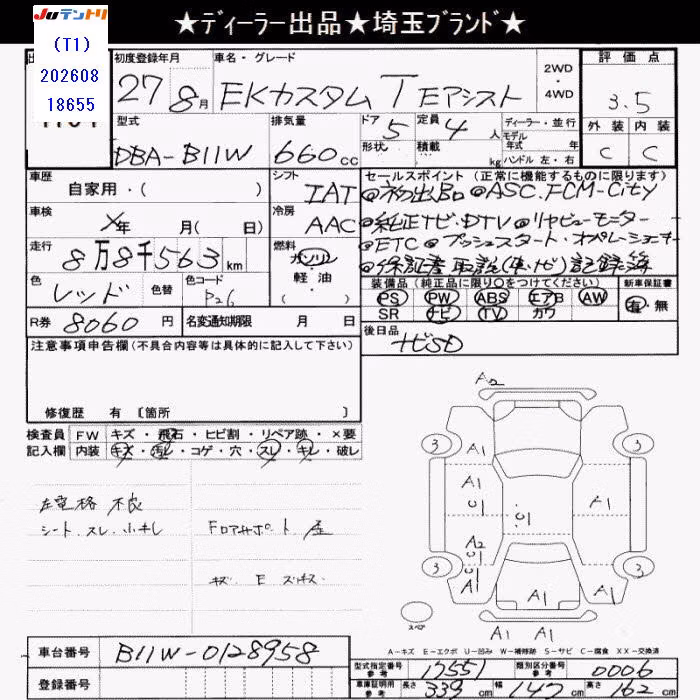 ★ディーラー出品★埼玉ブランド★
JUテントリ
(T1)
202608
18655
初度登録年月
27年 8月
車名・グレード
EKカスタム T Eアシスト
2WD
・
4WD
評価点
3.5
外装 内装
C C
型式
DBA-B11W
排気量
660cc
ドア 5
形状
定員 4人
積載 kg
ディーラー・並行
モデル
年式 年
ハンドル 左・右
車歴
自家用・( )
シフト
IAT
車検
X年 月( 日)
冷房
AAC
走行
8万8千563km
燃料
ガソリン
軽・油
( )
色
レッド
色替
色コード
P26
R券 8060円
名変通知期限 月 日
セールスポイント(正常に機能するものに限ります)
@ASC.FCM-City
@純正ナビ・DTV @リヤビューモニター
@ETC @プッシュスタート・オペレーションキー
@保証書 取説(車・ナビ)記録簿
装備品(純正品に限り○をつけてください)
PS PW ABS エアB AW
SR ナビ TV カワ
新車保証書
有・無
後日品
ナビSD
注意事項申告欄(不具合内容等は具体的に記入して下さい)
修復歴 有 〔箇所 〕
検査員
記入欄
FW キズ・飛石・ヒビ割・リペア跡・×要
内装 キズ・汚レ・コゲ・穴・スレ・キレ・破レ
左電格 不良
シート スレ 小キレ
フロアサポート
キズ E
A2
A1
3 3
A1
U1
A1
U1
A2
U1
A1
U1
A1
3 3
A1
A1 A1
スペア
A-キズ E-エクボ U-凹み W-補修跡 S-サビ C-腐食 XX-交換済
車台番号 B11W-0128958
登録番号
型式指定番号
参考
17551
類別区分番号
参考
0006
車庫証明用
参考
長さ 339cm 幅 147cm 高さ 162cm